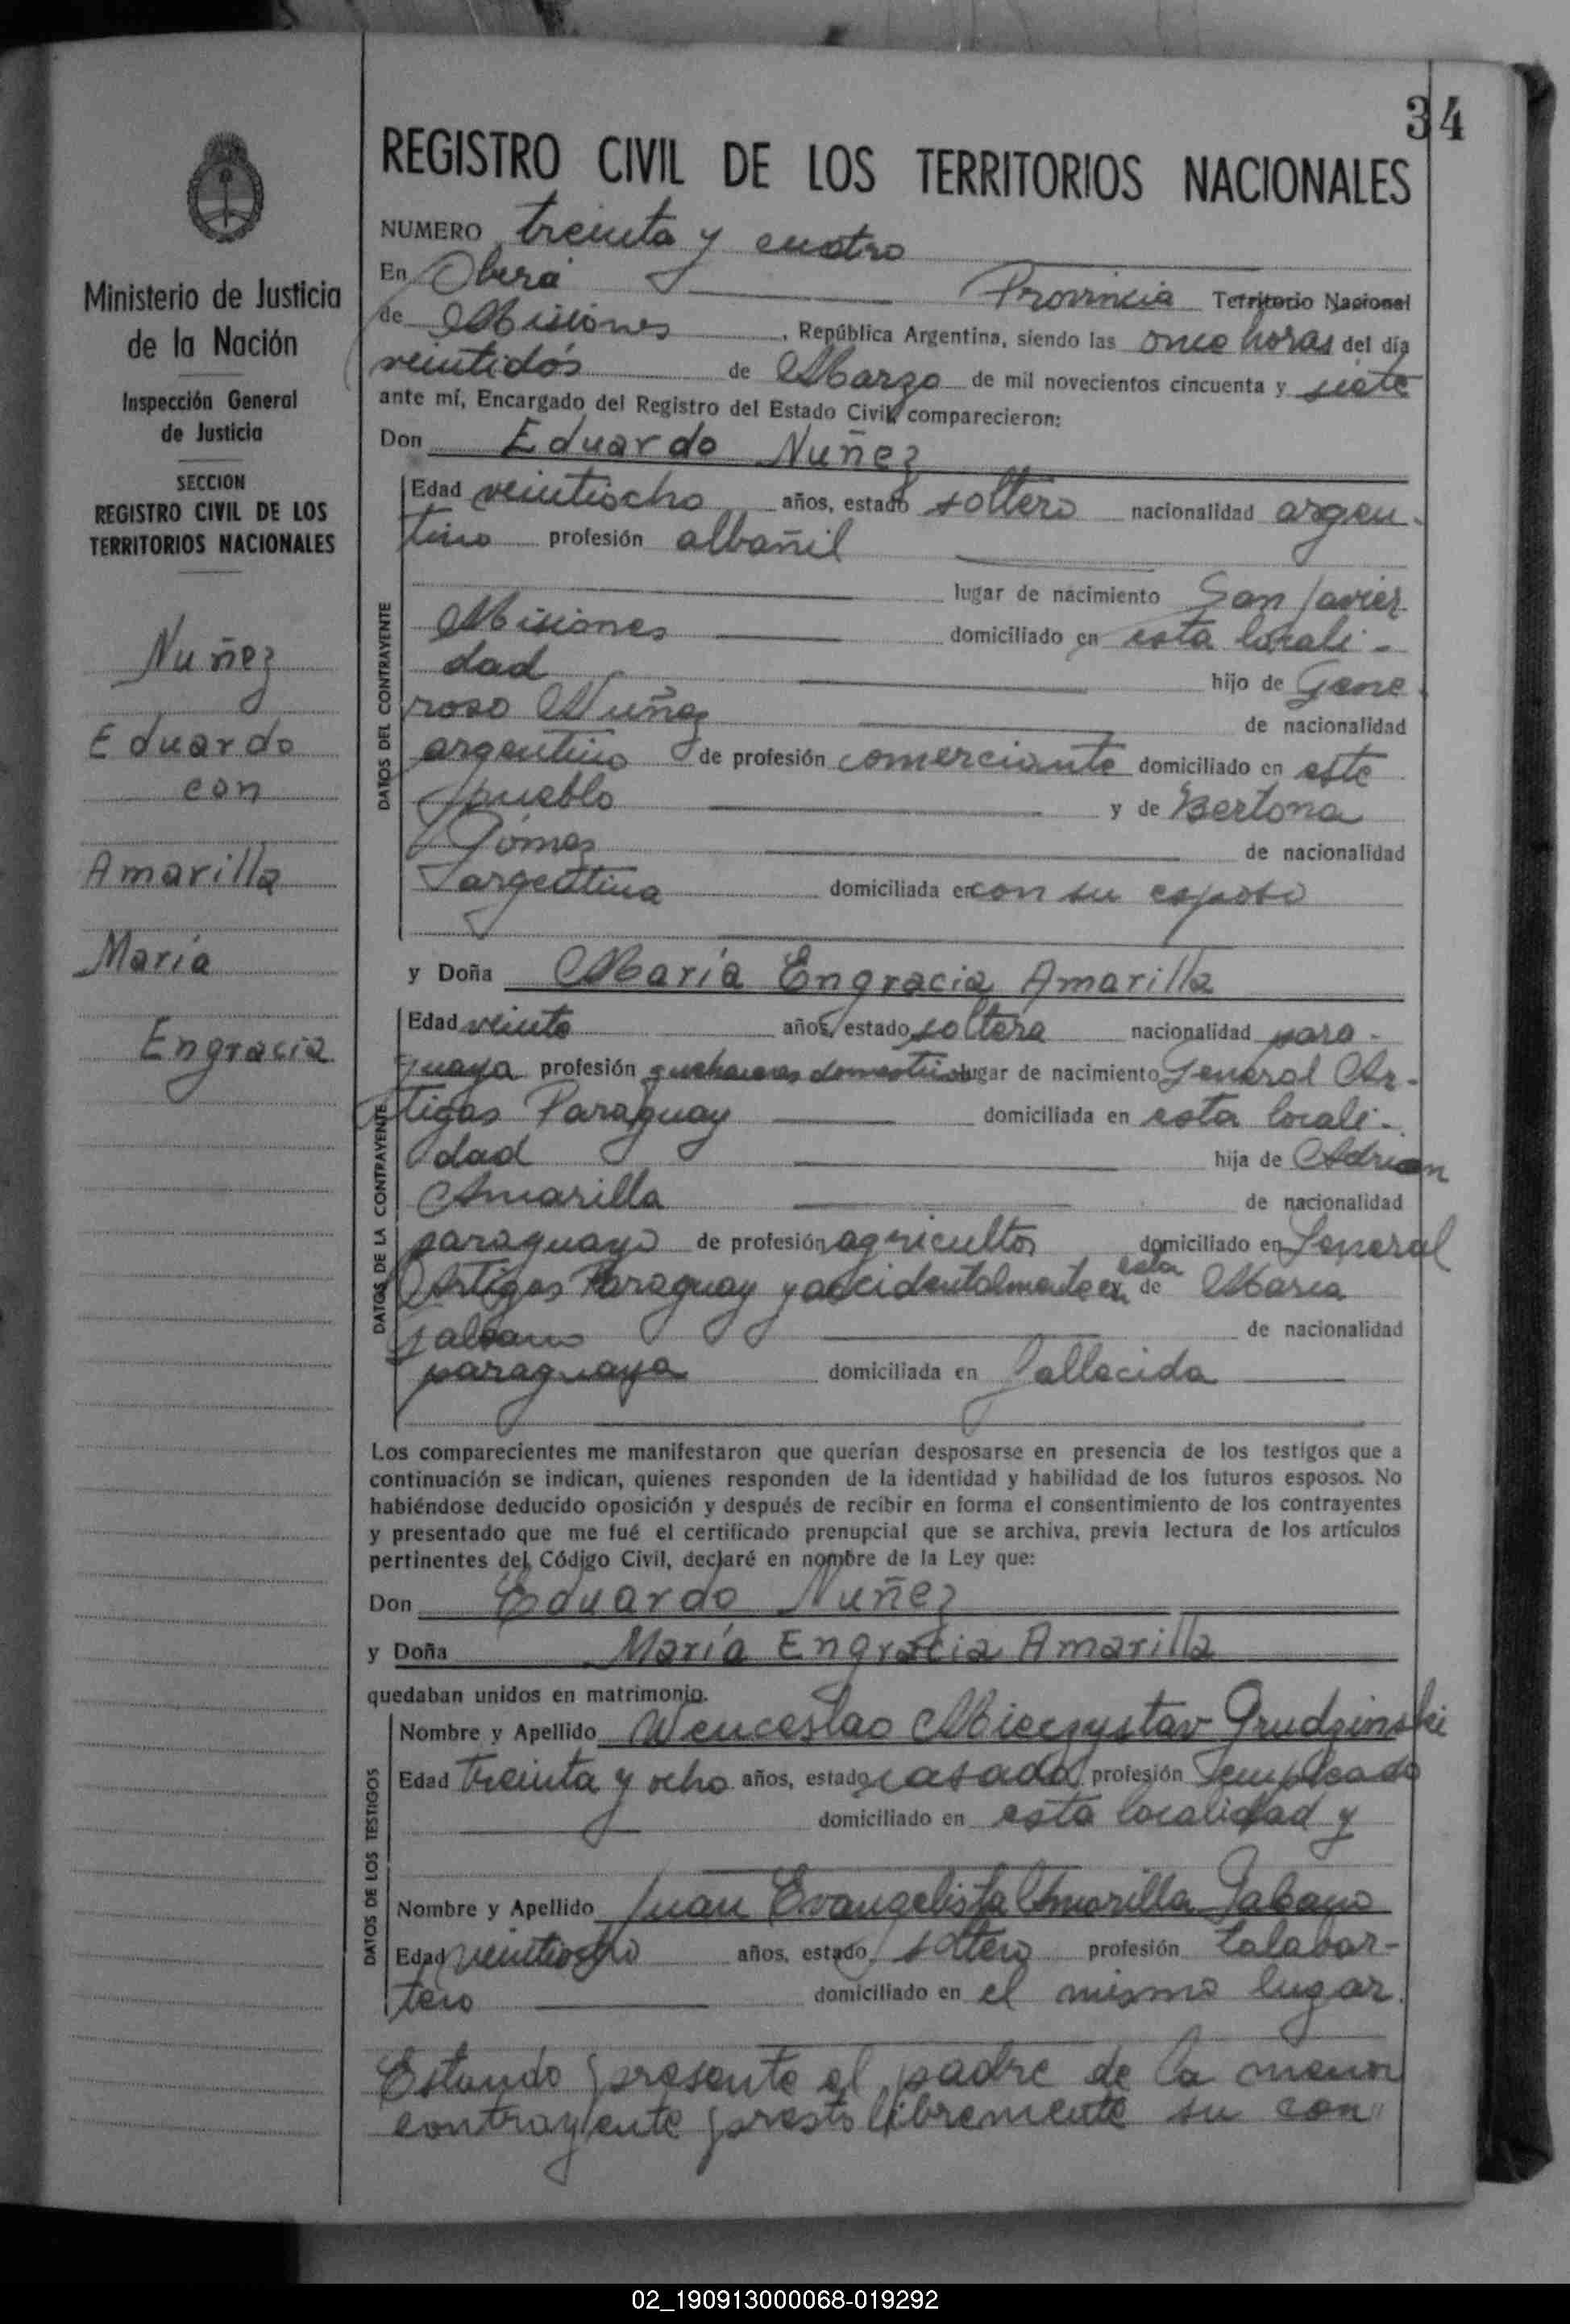 34
REGISTRO CIVIL DE LOS TERRITORIOS NACIONALES
Ministerio de Justicia
de la Nación
Inspección General
de Justicia
SECCION
REGISTRO CIVIL DE LOS
TERRITORIOS NACIONALES
Nuñez
Eduardo
con
Amarilla
María
Engracia
NUMERO treinta y cuatro
En Oberá Provincia Territorio Nacional
de Misiones, República Argentina, siendo las once horas del día
veintidós de Marzo de mil novecientos cincuenta y siete
ante mí, Encargado del Registro del Estado Civil comparecieron:
Don Eduardo Nuñez
DATOS DEL CONTRAYENTE
Edad veintiocho años, estado soltero nacionalidad argen-
tino profesión albañil
lugar de nacimiento San Javier
Misiones domiciliado en esta locali-
dad hijo de Gene-
roso Nuñez de nacionalidad
argentino de profesión comerciante domiciliado en este
pueblo y de Bertona
Gómez de nacionalidad
argentina domiciliada en con su esposo
y Doña María Engracia Amarilla
DATOS DE LA CONTRAYENTE
Edad veinte años, estado soltera nacionalidad para-
guaya profesión quehaceres domésticos lugar de nacimiento General Ar-
tigas Paraguay domiciliada en esta locali-
dad hija de Adrian
Amarilla de nacionalidad
paraguayo de profesión agricultor domiciliado en General
Artigas Paraguay y accidentalmente en esta de Maria
Galeano de nacionalidad
paraguaya domiciliada en fallecida
Los comparecientes me manifestaron que querían desposarse en presencia de los testigos que a
continuación se indican, quienes responden de la identidad y habilidad de los futuros esposos. No
habiéndose deducido oposición y después de recibir en forma el consentimiento de los contrayentes
y presentado que me fué el certificado prenupcial que se archiva, previa lectura de los artículos
pertinentes del Código Civil, declaré en nombre de la Ley que:
Don Eduardo Nuñez
y Doña María Engracia Amarilla
quedaban unidos en matrimonio.
DATOS DE LOS TESTIGOS
Nombre y Apellido Wenceslao Mieczystav Grudzinski
Edad treinta y ocho años, estado casado profesión empleado
domiciliado en esta localidad y
Nombre y Apellido Juan Evangelista Amarilla Galeano
Edad veintiocho años, estado soltero profesión talabar-
tero domiciliado en el mismo lugar.
Estando presente el padre de la menor
contrayente presto libremente su con"
02_190913000068-019292